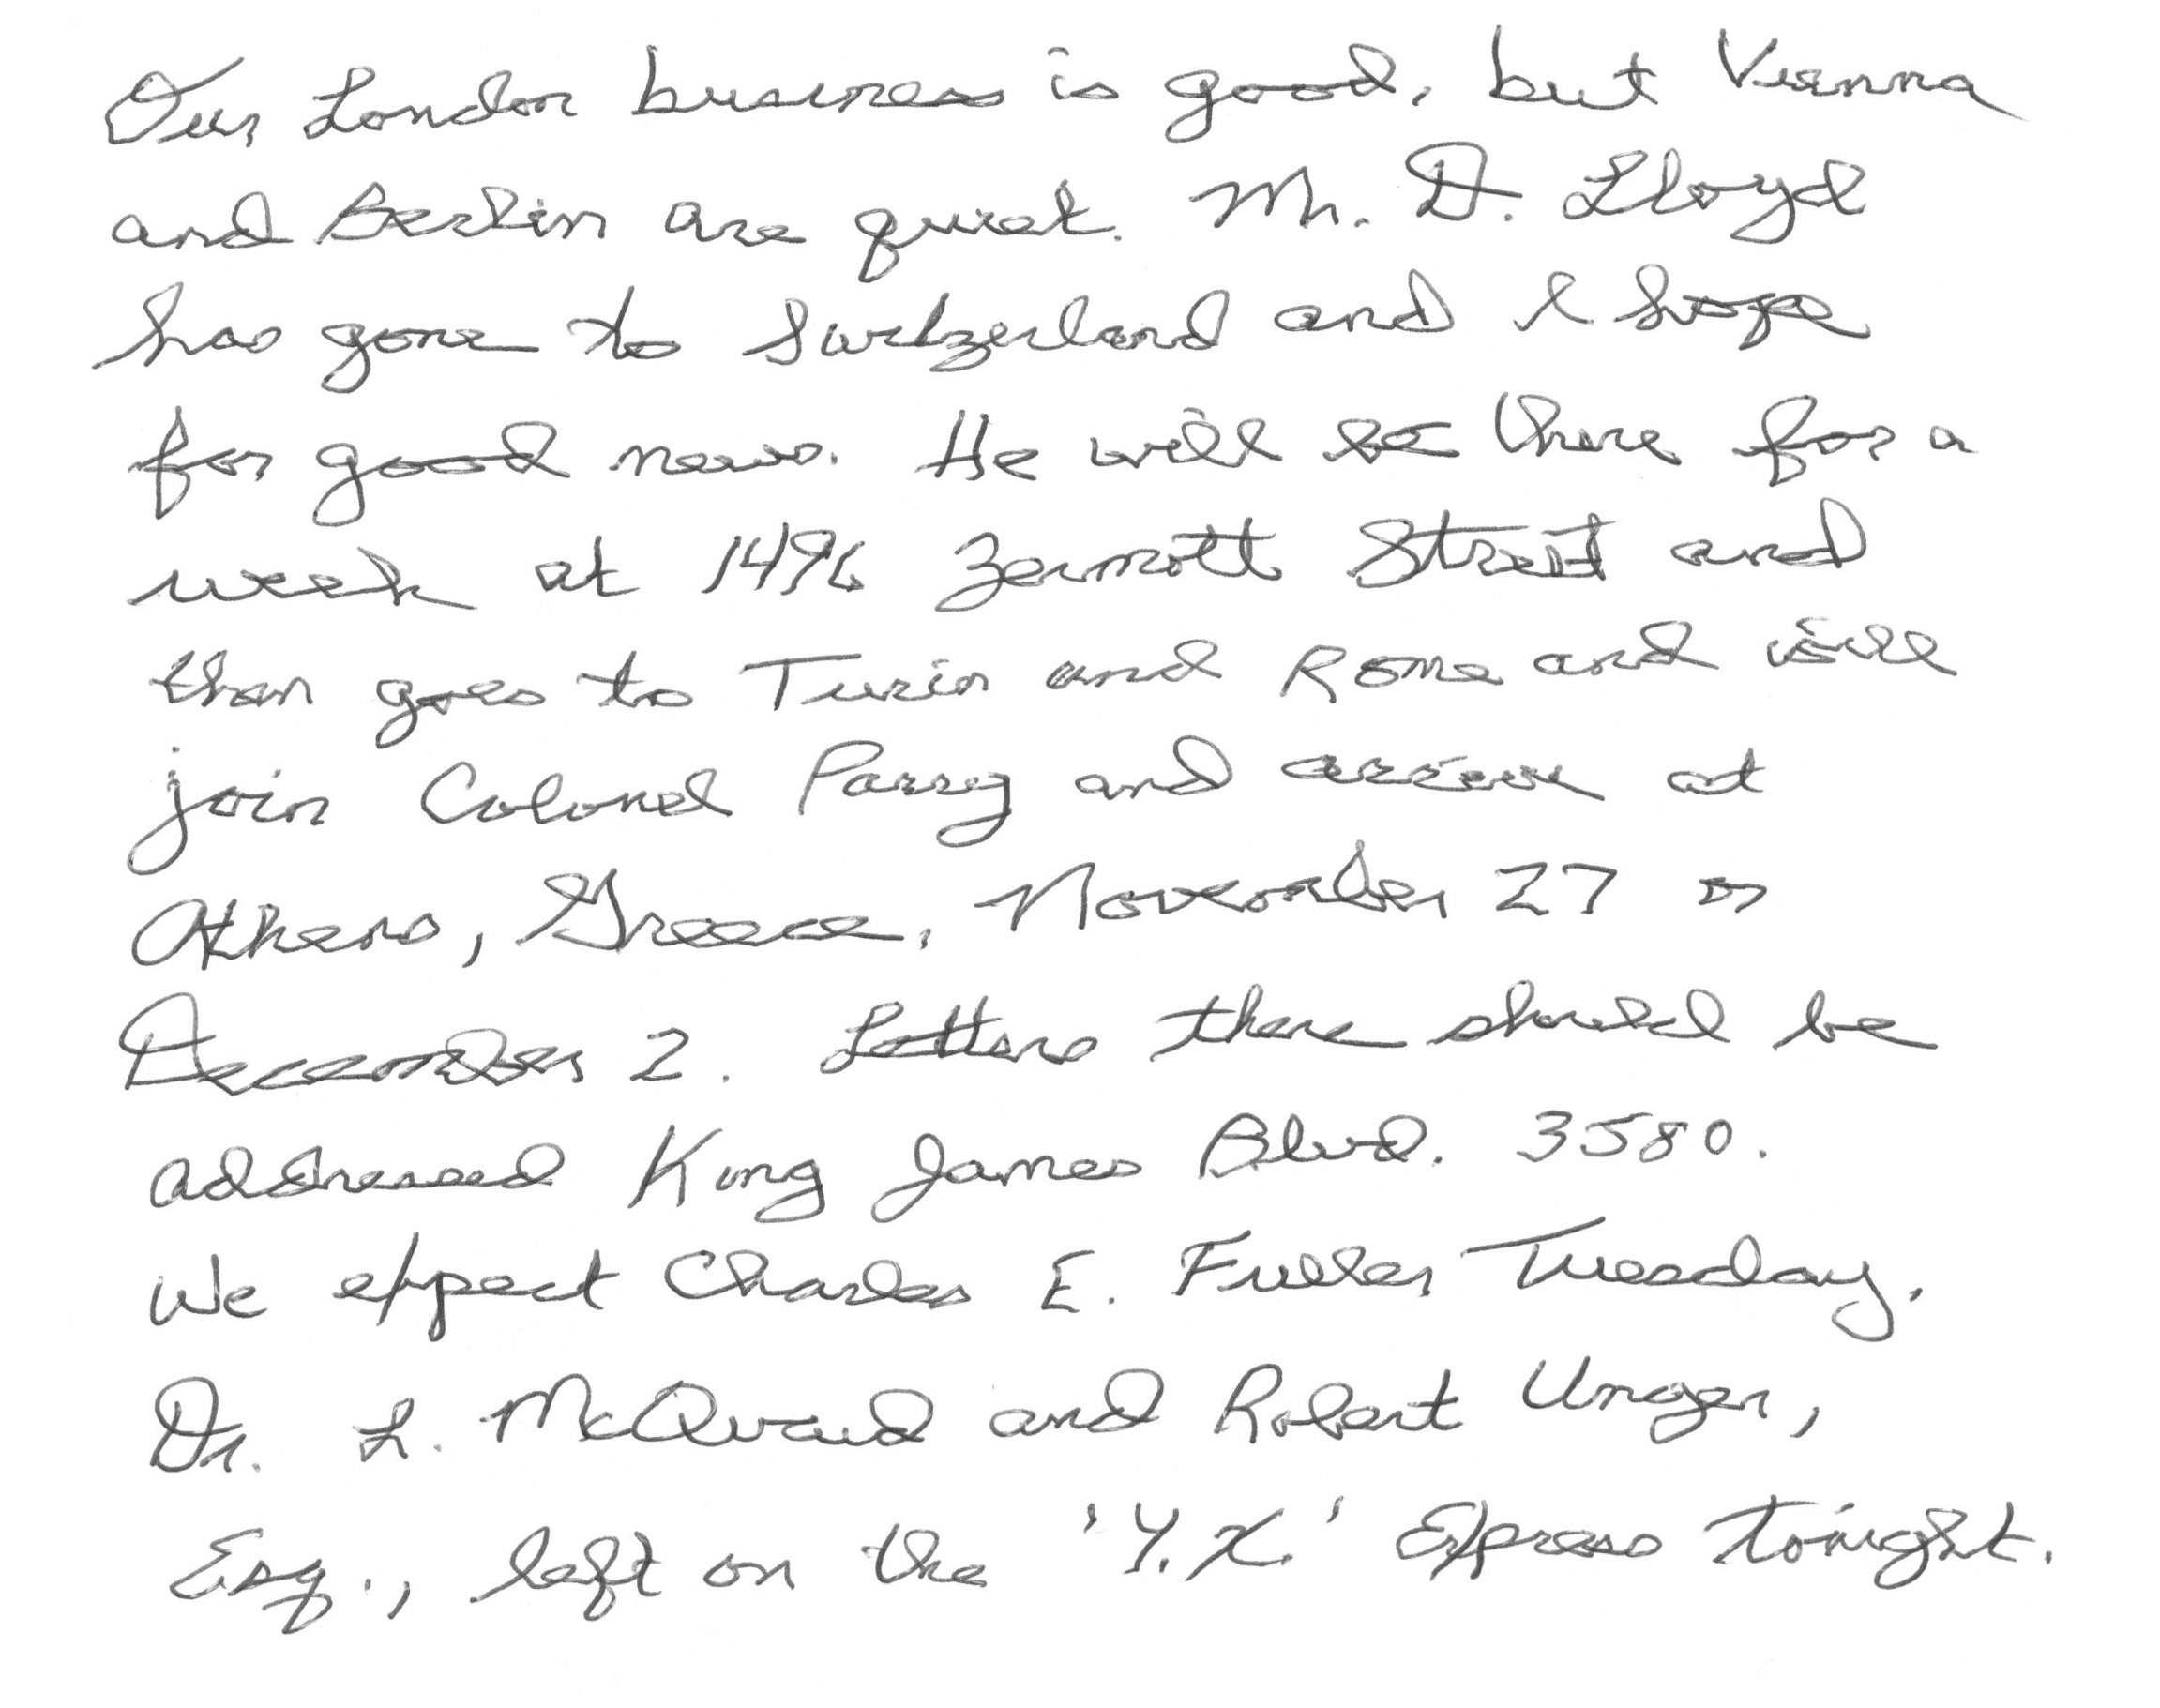 Our London business is good, but Vienna
and Berlin are quiet. Mr. D. Lloyd
has gone to Switzerland and I hope
for good news. He will be there for a
week at 1496 Zermott Street and
then goes to Turin and Rome and will
join Colonel Parry and arrive at
Athens, Greece, November 27 or
December 2. Letters there should be
addressed King James Blvd. 3580.
We expect Charles E. Fuller Tuesday.
Dr. L. McQuaid and Robert Unger,
Esq., left on the 'Y.X.' Express tonight.